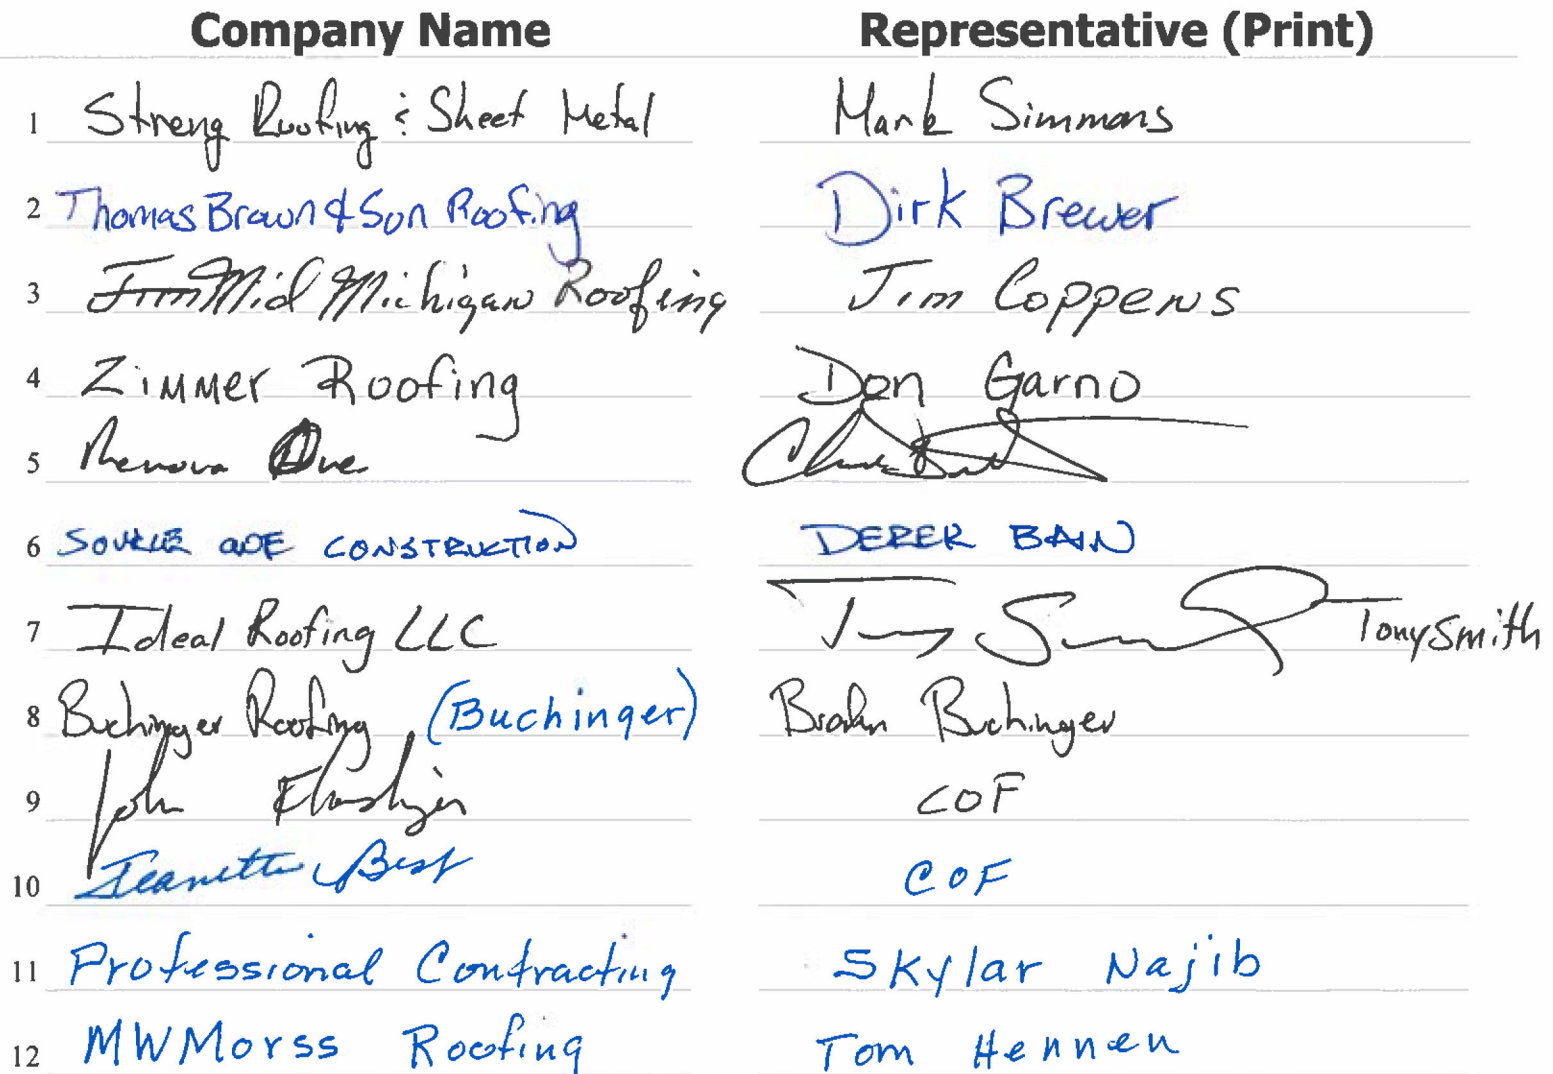 Company Name Representative (Print)
1 Streng Roofing & Sheet Metal Mark Simmons
2 Thomas Brown & Son Roofing Dirk Brewer
3 Jim Mid Michigan Roofing Jim Coppens
4 Zimmer Roofing Don Garno
5 Renova One
6 SOURCE ONE CONSTRUCTION DEREK BAIN
7 Ideal Roofing LLC Tony Smith Tony Smith
8 Buchinger Roofing (Buchinger) Buchinger
9 John COF
10 Jeanette Best COF
11 Professional Contracting Skylar Najib
12 MWMorss Roofing Tom Hennen